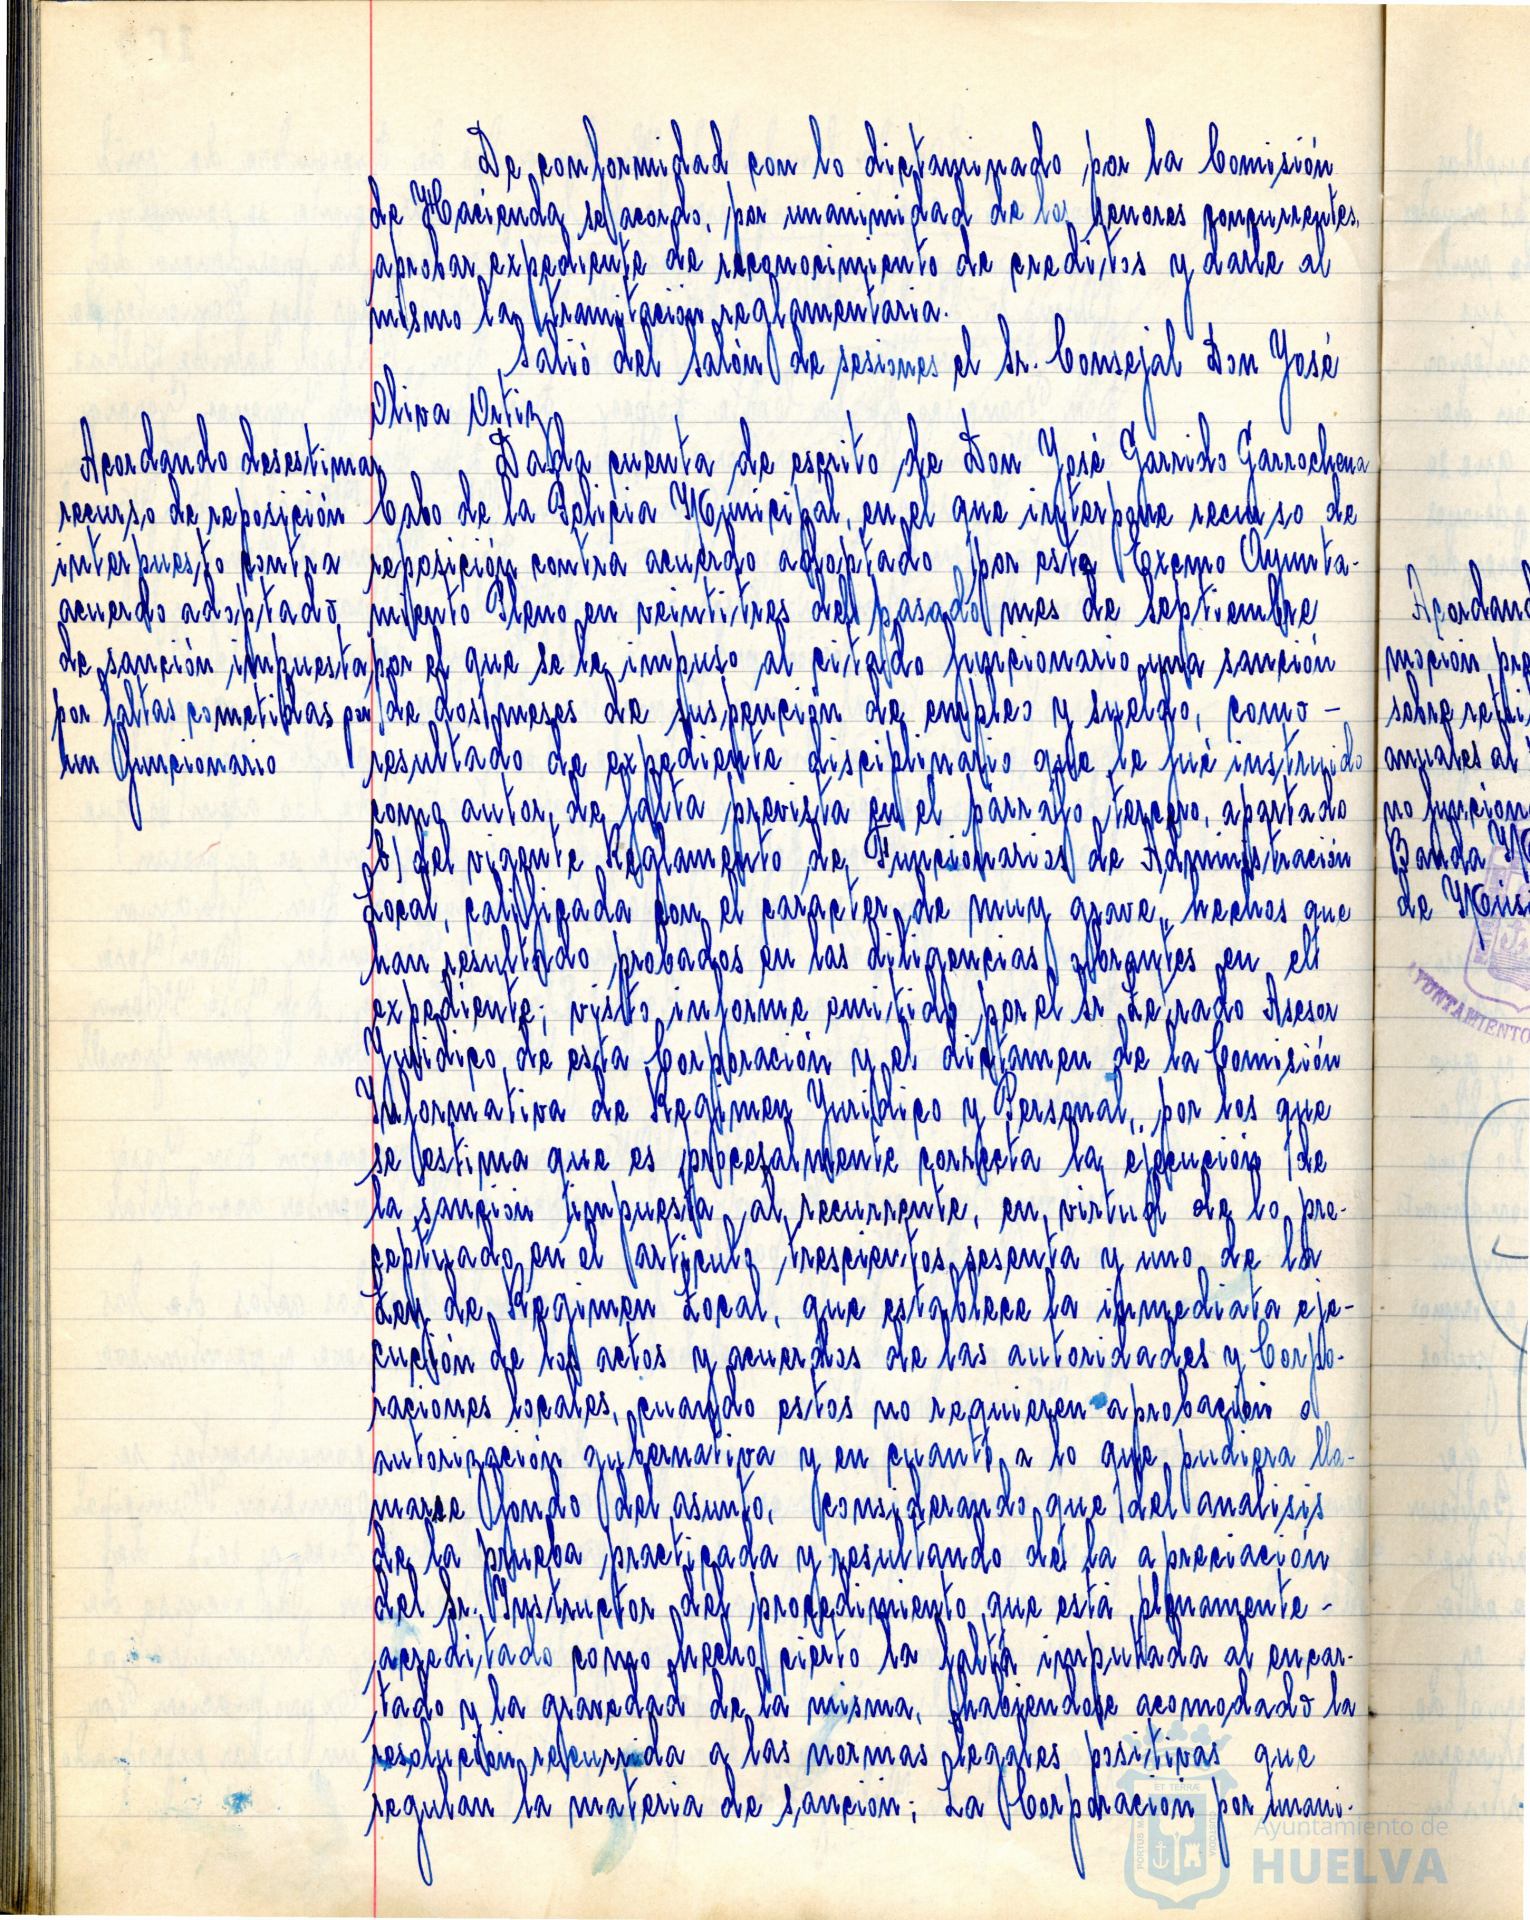 De conformidad con lo dictaminado por la Comisión
de Hacienda se acordo, por unanimidad de los senores concurrentes,
aprobar expediente de reconocimiento de creditos y darle al
mismo la tramitación reglamentaria.
Salió del salón de sesiones el Sr. Consejal Don José
Oliva Ortiz
Acordando desestimar
recurso de reposición
interpuesto contra
acuerdo adoptado
de sanción impuesta
por faltas cometidas por
un funcionario
Dada cuenta de escrito de Don José Garrido Garrochena
Cabo de la Policia Municipal, en el que interpone recurso de
reposición contra acuerdo adoptado por este Excmo Ayunta-
miento Pleno en veintitres del pasado mes de Septiembre
por el que se le impuso al citado funcionario una sanción
de dos meses de suspención de empleo y sueldo, como -
resultado de expediente disciplinario que le fué instruido
como autor de falta prevista en el párrafo tercero, apartado
b) del vigente Reglamento de Funcionarios de Administración
Local, calificada con el caracter de muy grave, hechos que
han resultado probados en las diligencias obrantes en el
expediente; visto informe emitido por el Sr Letrado Asesor
Juridico de esta Corporación y el dictamen de la Comisión
Informativa de Regimen Juridico y Personal, por los que
se estima que es procesalmente correcta la ejecución de
la sanción impuesta al recurrente, en virtud de lo pre-
ceptuado en el articulo trescientos sesenta y uno de la
Ley de Regimen Local, que establece la inmediata eje-
cución de los actos y acuerdos de las autoridades y Corpo-
raciones locales, cuando estos no requieren aprobación o
autorización gubernativa y en cuanto a lo que pudiera lla-
marse fondo del asunto, considerando que del analisis
de la prueba practicada y resultando de la apreciación
del Sr. Instructor del procedimiento que está plenamente -
acreditado como hecho cierto la falta imputada al encar-
tado y la gravedad de la misma, habiendose acomodado la
resolución recurrida a las normas legales positivas que
regulan la materia de sanción; La Corporación por unani-
Acordand
moción pre
sobre retri
anuales al
no funcion
Banda M
de Músi
AYUNTAMIENTO
PORTUS MARIS ET TERRÆ CUSTODIA
Ayuntamiento de
HUELVA